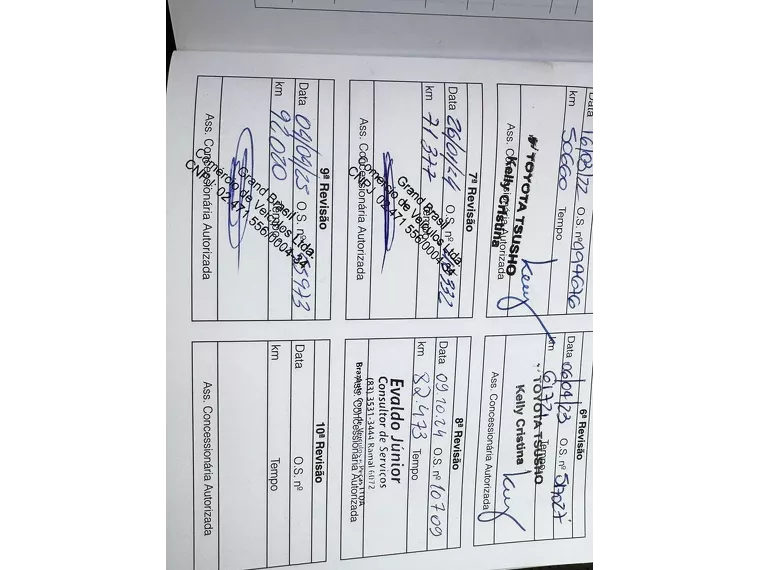 Data 16/08/22 O.S. nº 499676
km 50660 Tempo
TOYOTA TSUSHO
Kelly Cristina
Ass. Concessionária Autorizada
6ª Revisão
Data 06/04/23 O.S. nº 517027
km 61771 Tempo
TOYOTA TSUSHO
Kelly Cristina
Ass. Concessionária Autorizada
7ª Revisão
O.S. nº
km 71377 Tempo
Grand Brasil
Comércio de Veículos Ltda.
CNPJ 02.471.556/0004-54
Ass. Concessionária Autorizada
8ª Revisão
Data 09.10.24 O.S. nº 10709
km 82.473 Tempo
Evaldo Júnior
Consultor de Serviços
(83) 3531-3444 Ramal 6072
Ass. Concessionária Autorizada
9ª Revisão
Data 04/04/25 O.S. nº
km Tempo
Grand Brasil
Comércio de Veículos Ltda.
CNPJ: 02.471.556/0004-54
Ass. Concessionária Autorizada
10ª Revisão
Data O.S. nº
km Tempo
Ass. Concessionária Autorizada